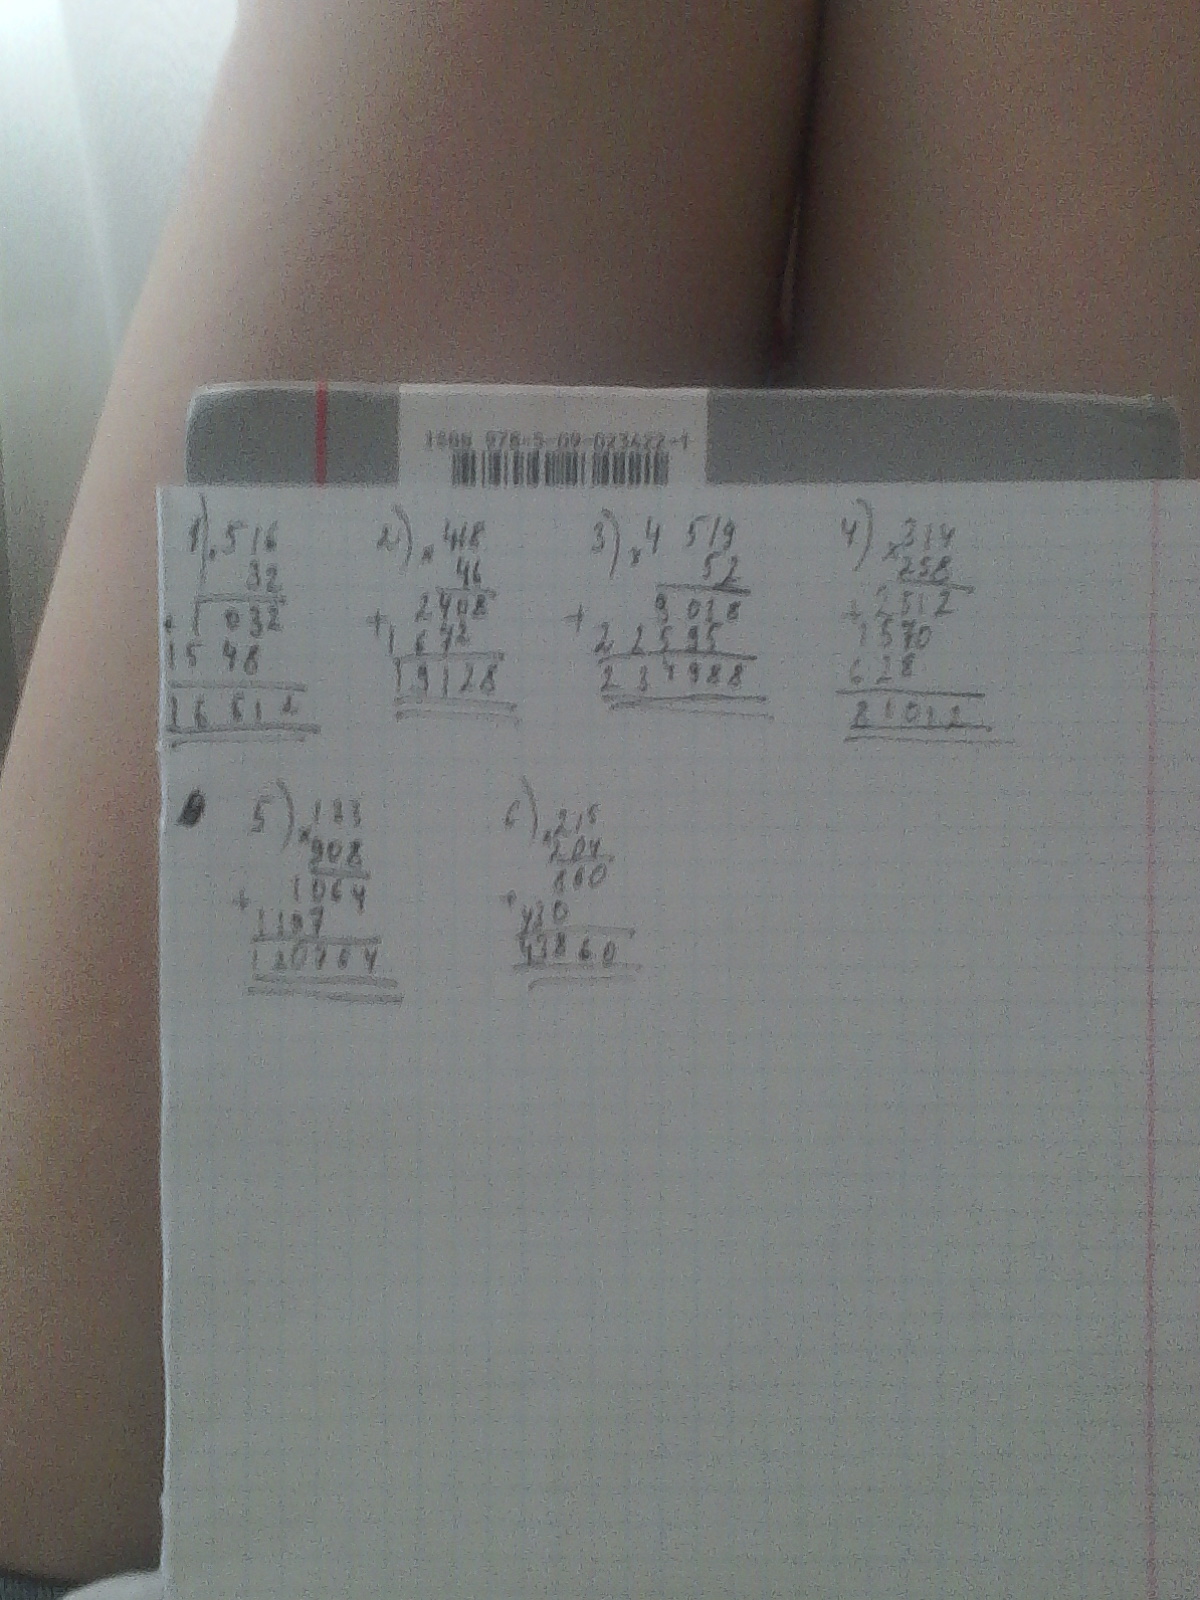 ISBN 978-5-09-023422-1
1) × 516
32
+ 1 032
15 48
16 512
2) × 418
46
+ 2408
1 672
19128
3) × 4 519
52
+ 9 038
2 2 5 9 5
2 3 4 9 8 8
4) × 314
258
+ 2512
1570
628
81012
5) × 133
908
+ 1064
1197
120764
6) × 215
204
+ 860
430
43860